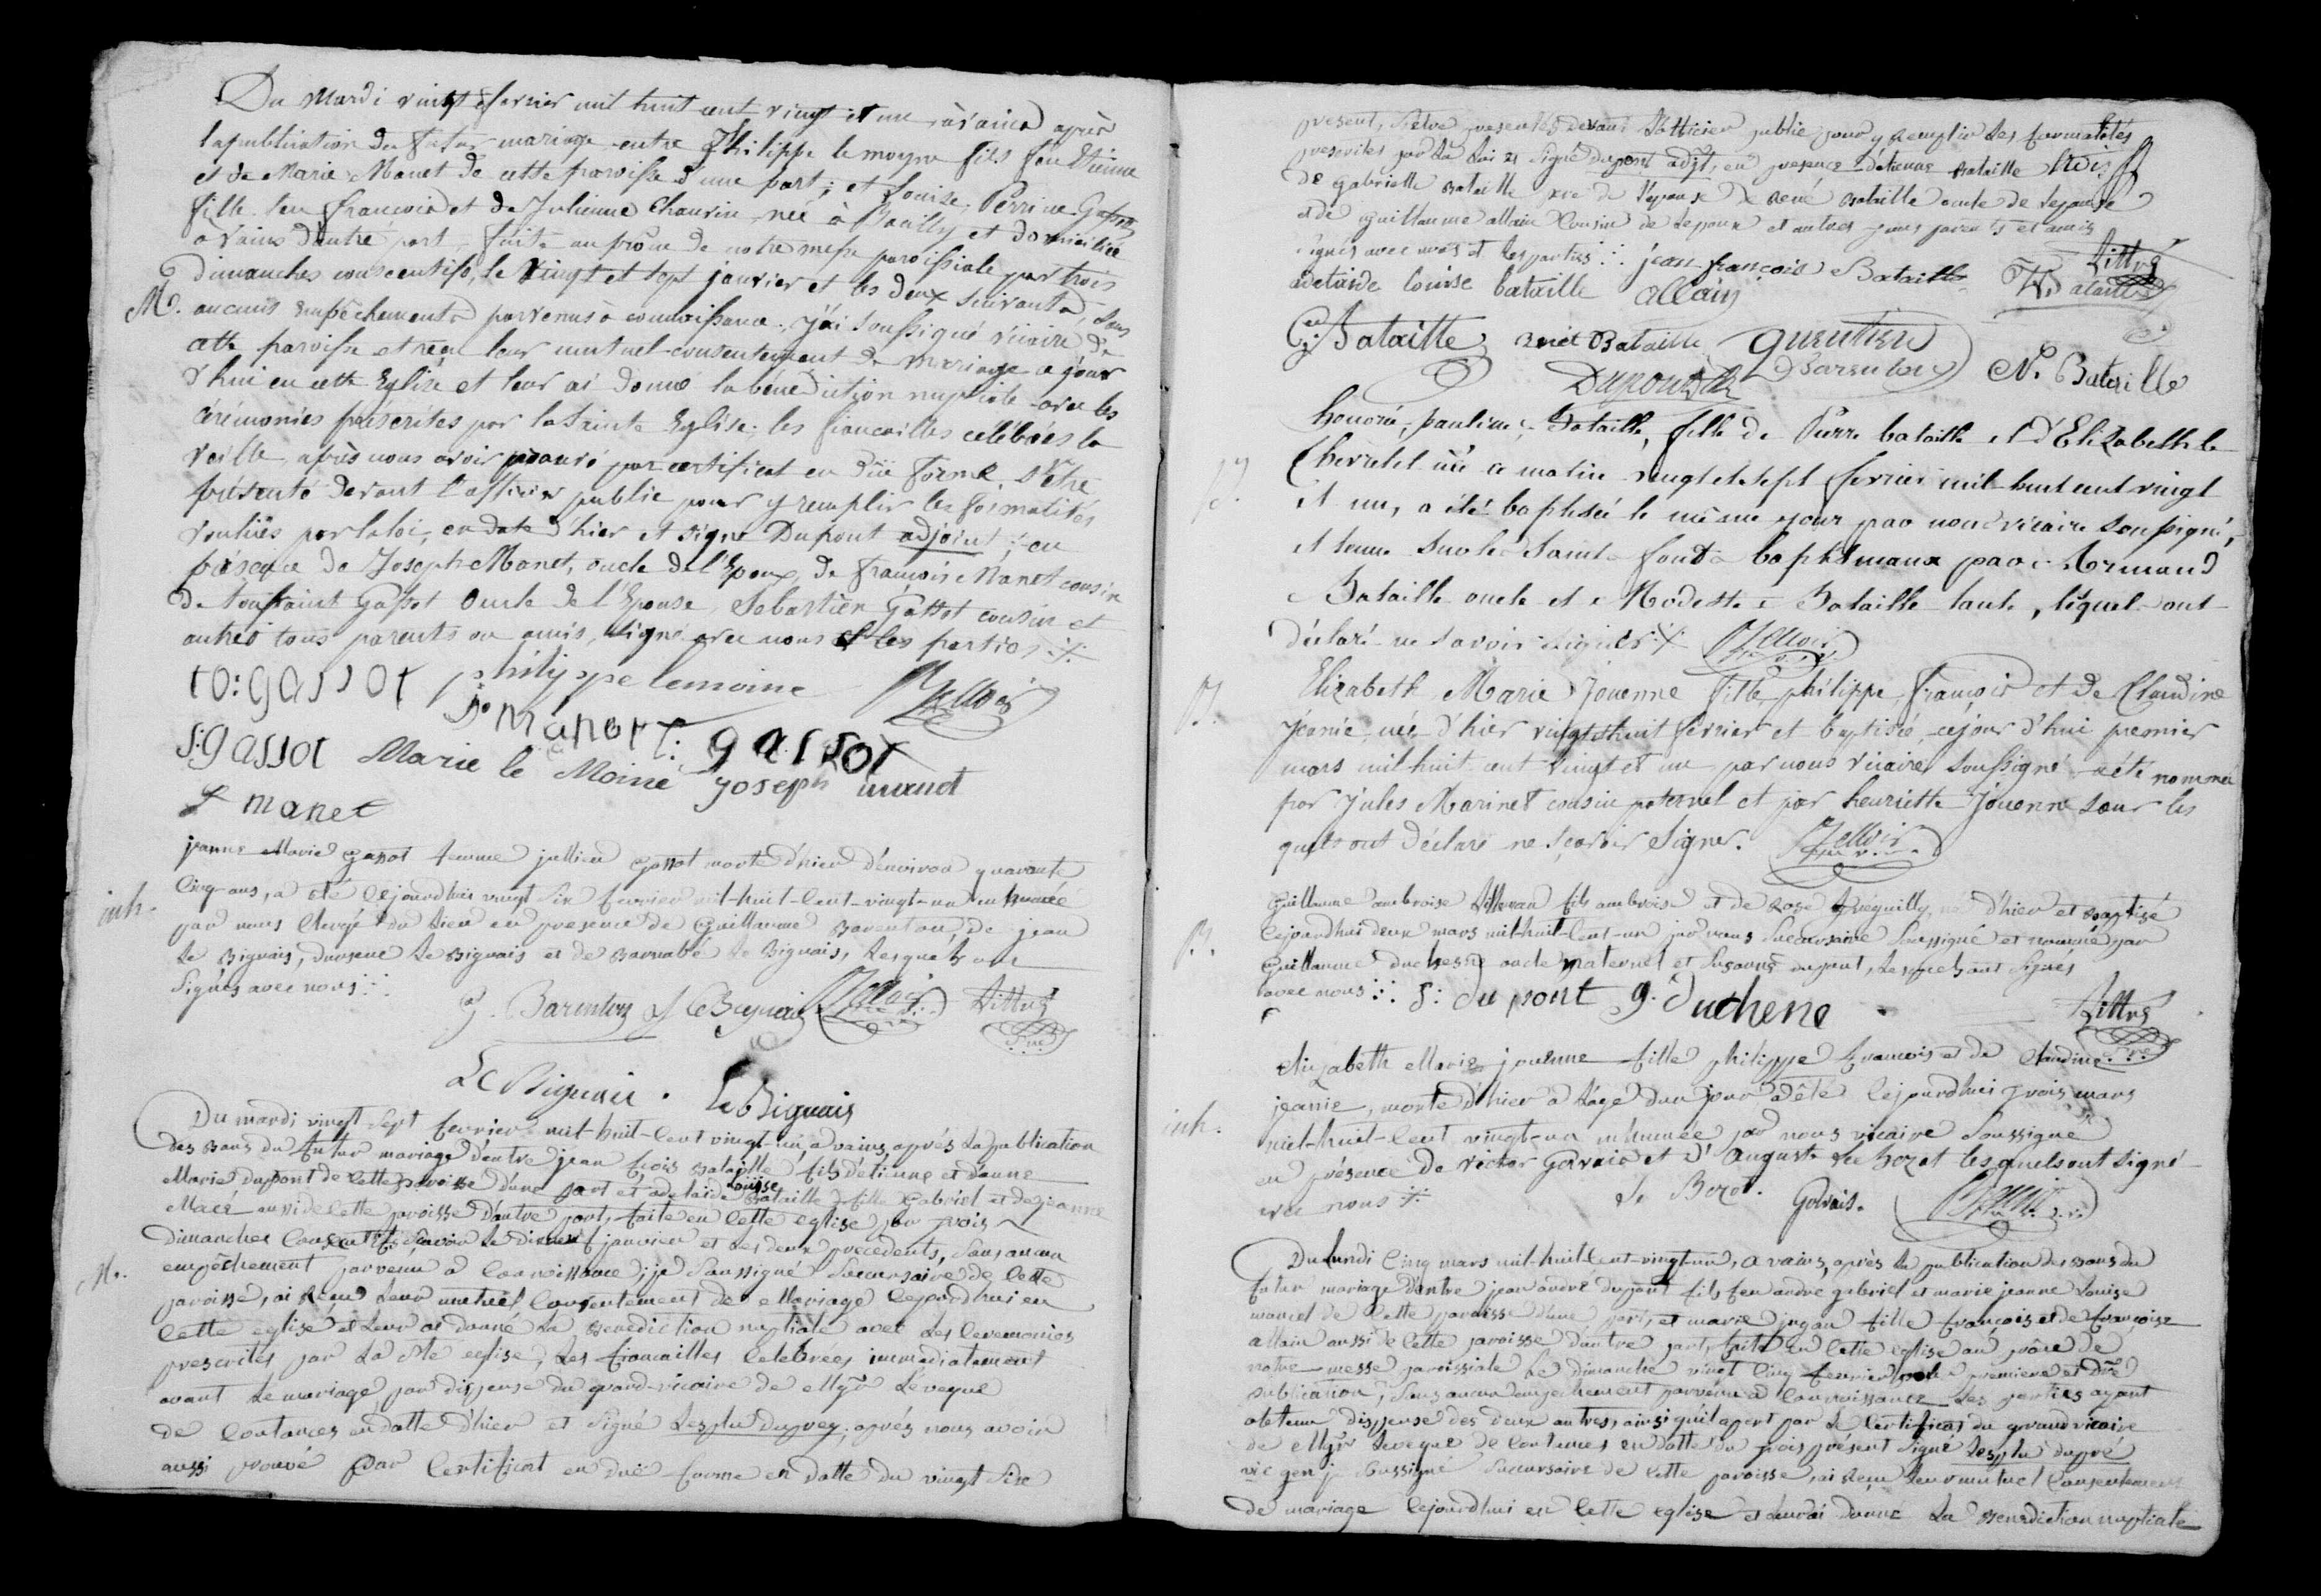 Du Mardi vingt fevrier mil huit cent vingt et un, à vains après
la publication du futur mariage entre Philippe le moyne fils feu Etienne
et de Marie Manet de cette paroisse d'une part; et Louise Perrine Gassot
fille feu françois et de Julienne Chauvin née à Bouilly et domiciliée
à vains d'autre part, faite au prône de notre messe paroissiale par trois
dimanches consecutifs, le vingt et sept janvier et les deux suivants, sans
M. aucuns empêchements parvenus à connoissance, j'ai soussigné vicaire de
cette paroisse et reçu leur mutuel consentement de mariage ce jour
d'hui en cette Eglise et leur ai donné la bénédiction nuptiale avec les
cérémonies préscrites par la Sainte Eglise; les fiancailles célébrées la
veille après nous avoir prouvé par certificat en düe forme, s'être
présenté devant l'officier public pour y remplir les formalités
voulües par la loi, en date d'hier et signé Dupont adjoint; en
présence de Joseph Manet, oncle de l'Epoux, de françois Manet cousin
de toussaint Gassot oncle de l'Epouse, Sebastien Gassot cousin et
autres tous parents ou amis, signé avec nous et les parties
to: gassot philippe lemoine
jo manet
s: gassot Marie le Moine gassot
joseph manet
f manet
janne Marie gassot femme jullien gossot morte d'hier d'environ quarante
inh. Cinq ans, a été cejourdhui vingt six fevrier mil-huit-cent-vingt-un inhumée
par nous Clergé du lieu en presence de Guillaume Barenton, de jean
le Bignais, le Bignais et de Barnabé le Bignais, lesquels ont
signés avec nous
g. Barenton J LeBignais Littré
Le Bignais. LeBignais
Du mardi vingt sept fevrier mil-huit-cent vingt-un, a vains, après la publication
des bans du futur mariage d'entre jean fçois Bataille fils d'étienne et d'anne
Marie dupont de cette paroisse d'une part et adelaide Louise Bataille fille Gabriel et de jeanne
Macé aussi de cette paroisse d'autre part, faite en cette eglise par trois
dimanches consecutifs savoir le janvier et les deux precedents, sans aucun
M. empêchement parvenu a connoissance; je soussigné succursaire de cette
paroisse, ai reçu leur mutuel consentement de Mariage cejourdhui en
cette eglise et leur ai donné la Benediction nuptiale avec les ceremonies
prescrites par la Ste eglise, les fiancailles celebrées immediatement
avant le mariage, par dispense du grand-vicaire de Mgr Leveque
de Coutances en datte d'hier et signé Lesplu dupré; après nous avoir
aussi prouvé par Certificat en düe forme en datte du vingt six
present, s'être presentés devant l'officier public pour y remplir les formalités
prescrites par la loi et signé dupont adjt, en presence d'etienne Bataille
de gabrielle Bataille pere de l'épouse de René Bataille oncle de lepouse
et de guillaume allain Cousin de lepoux et autres tous parents et amis
signés avec nous et les parties jean françois Bataille Littré
adelaide louise bataille allain
Bataille René Bataille quentien
Dupont Barenton N. Bataille
honorée, pauline Bataille, fille de Pierre bataille et d'Elizabeth le
Chevretel née ce matin vingt et sept fevrier mil huit cent vingt
et un, a été baptisée le même jour par nous vicaire soussigné,
et tenue sur les Saints fonds baptismaux par Armand
Bataille oncle et Modeste Bataille tante, lesquels ont
déclaré ne savoir signer
Elizabeth Marie Jouenne fille philippe, françois et de Claudine
Jeanie, née d'hier vingt et huit fevrier et baptisée, cejour d'hui premier
mars mil huit cent vingt et un par nous vicaire soussigné a été nommée
par Jules Marinet cousin paternel et par henriette Jouenne sœur les
quels ont déclaré ne sçavoir signer.
Guillaume ambroise fils ambroise et de Rose né d'hier et Baptisé
cejourdhui deux mars mil-huit-cent-un par nous Succursaire soussigné et nommé par
guillaume duchesne oncle maternel et Susanne dupont, lesquels ont signés
avec nous S: du pont g. duchene Littré
elizabeth Marie jouenne fille philippe françois et de claudine
jeanie, morte d'hier à l'age d'un jour a été cejourdhui trois mars
inh. mil-huit-cent vingt-un inhumée par nous vicaire soussigné
en présence de Victor Gervais et d'Auguste Le Bozot lesquels ont signé
avec nous Le Bozot. Gervais.
Du lundi cinq mars mil-huit-cent-vingt-un, a vains, après la publication des bans du
futur mariage d'entre jean andré dupont fils feu andré gabriel et marie jeanne Louise
manuel de cette paroisse d'une part, et marie jugan fille françois et de françoise
allain aussi de cette paroisse d'autre part, faite en cette eglise au prône de
notre messe paroissiale le dimanche vingt cinq fevrier pour premiere et dre
publication, sans aucun empêchement parvenu a connoissance les parties ayant
obtenu dispense des deux autres, ainsi qu'il apert par le certificat du grand vicaire
de Mgr Leveque de Coutances en datte du trois présent signé Lesplu dupré
vic gen je soussigné Succursaire de cette paroisse, ai reçu leur mutuel consentement
de mariage cejourdhui en cette eglise et leur ai donné la Benediction nuptiale